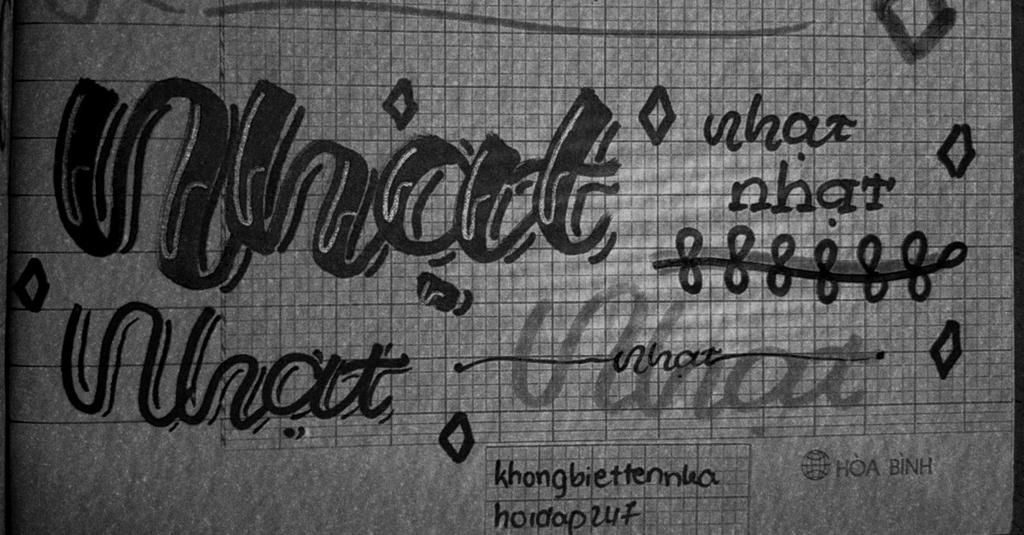 Nhạt
nhạt
nhạt
Nhạt
nhạt
Nhạt
HÒA BÌNH
khongbiettennua
hoidap247